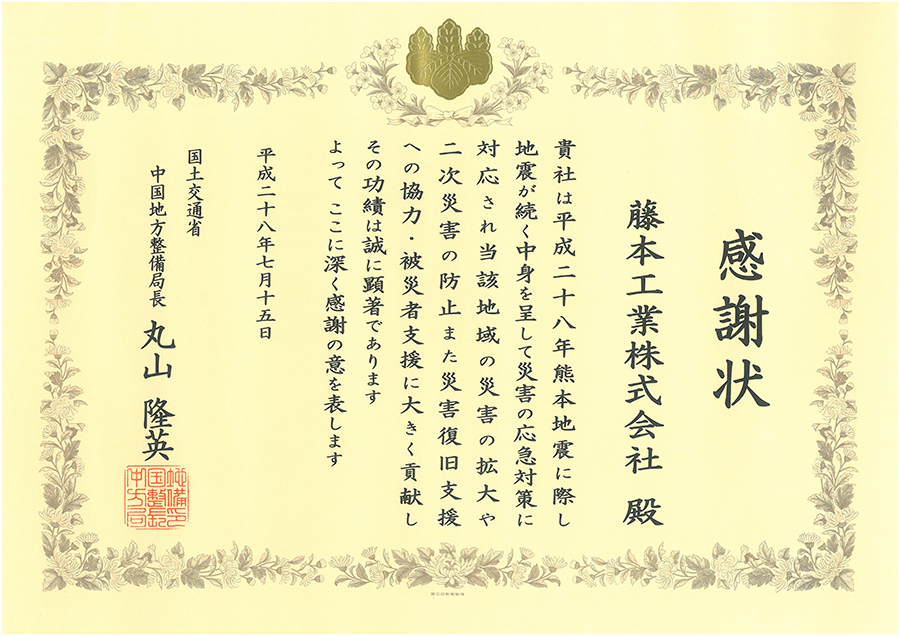 感謝状
藤本工業株式会社 殿
貴社は平成二十八年熊本地震に際し
地震が続く中身を呈して災害の応急対策に
対応され当該地域の災害の拡大や
二次災害の防止また災害復旧支援
への協力・被災者支援に大きく貢献し
その功績は誠に顕著であります
よって ここに深く感謝の意を表します
平成二十八年七月十五日
国土交通省
中国地方整備局長 丸山 隆英